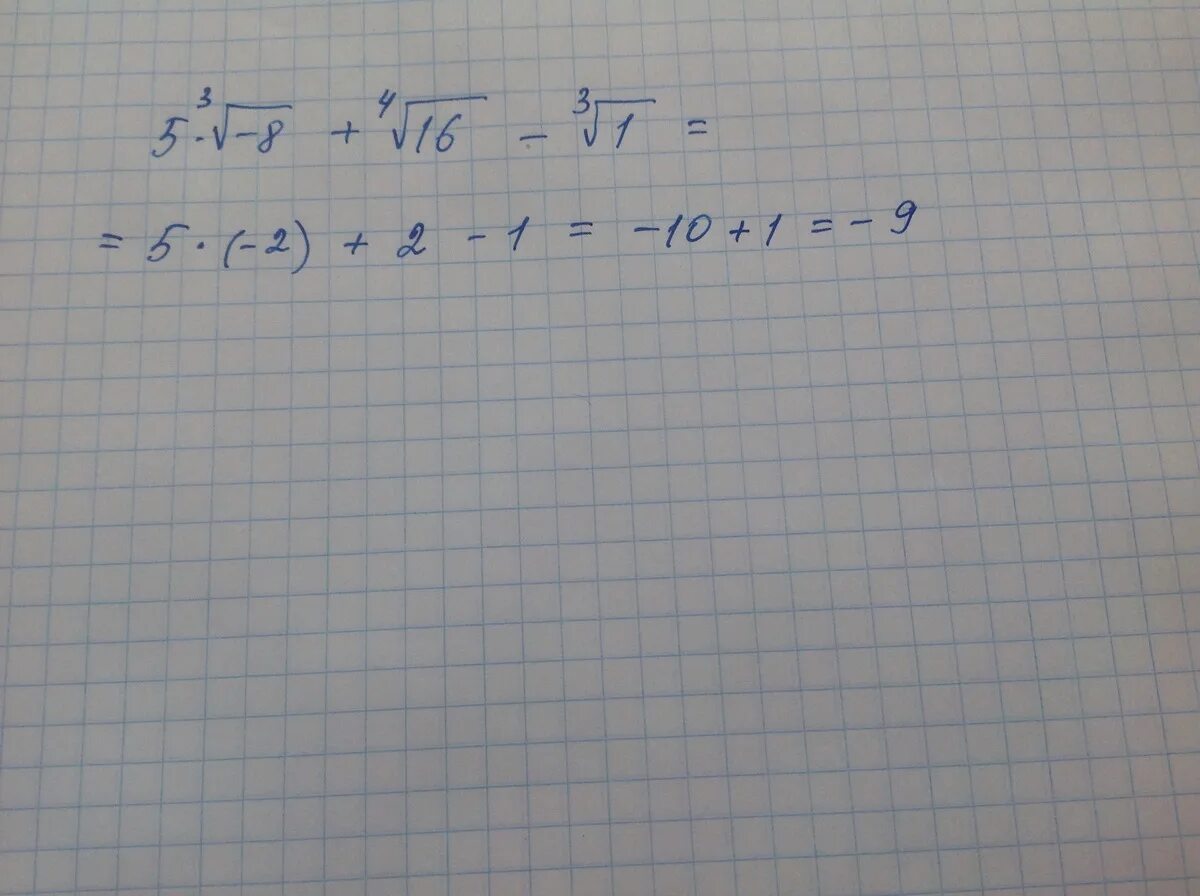 5·∛-8 + ∜16 - ∛1 =
= 5·(-2) + 2 - 1 = -10 + 1 = -9